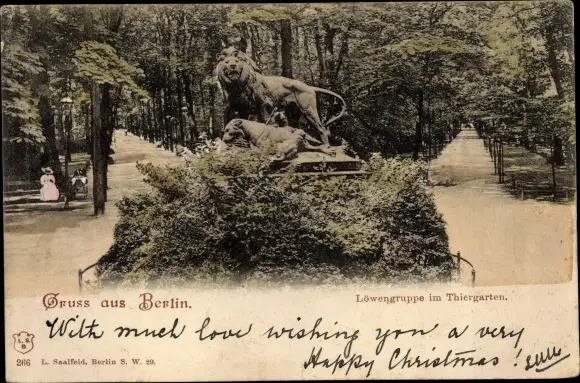 Gruss aus Berlin.
Löwengruppe im Thiergarten.
With much love wishing you a very
Happy Christmas!
L. S. B.
266 L. Saalfeld, Berlin S. W. 29.